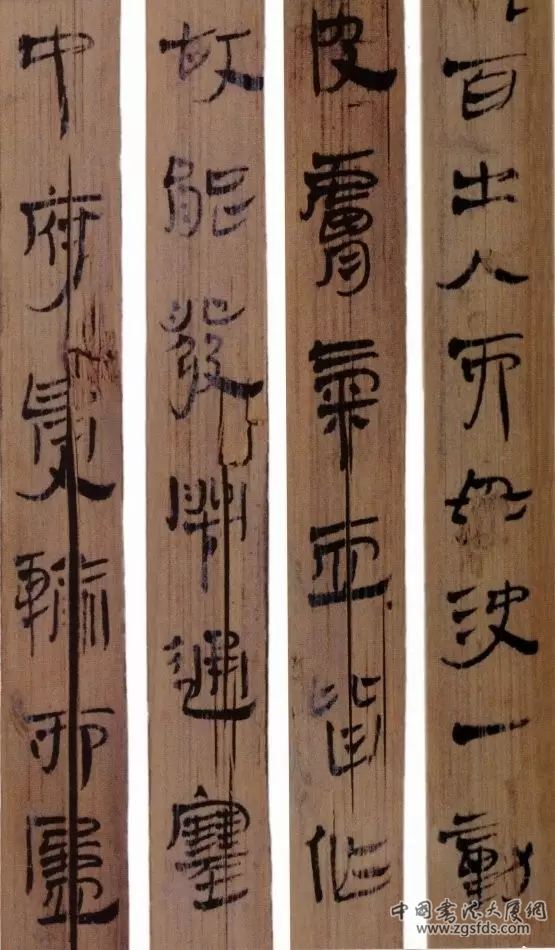 百出入而毋決一動
皮膚氣血皆作
故能發閉通塞
中府受輸而盈
中国书法大厦網
www.zgsfds.com